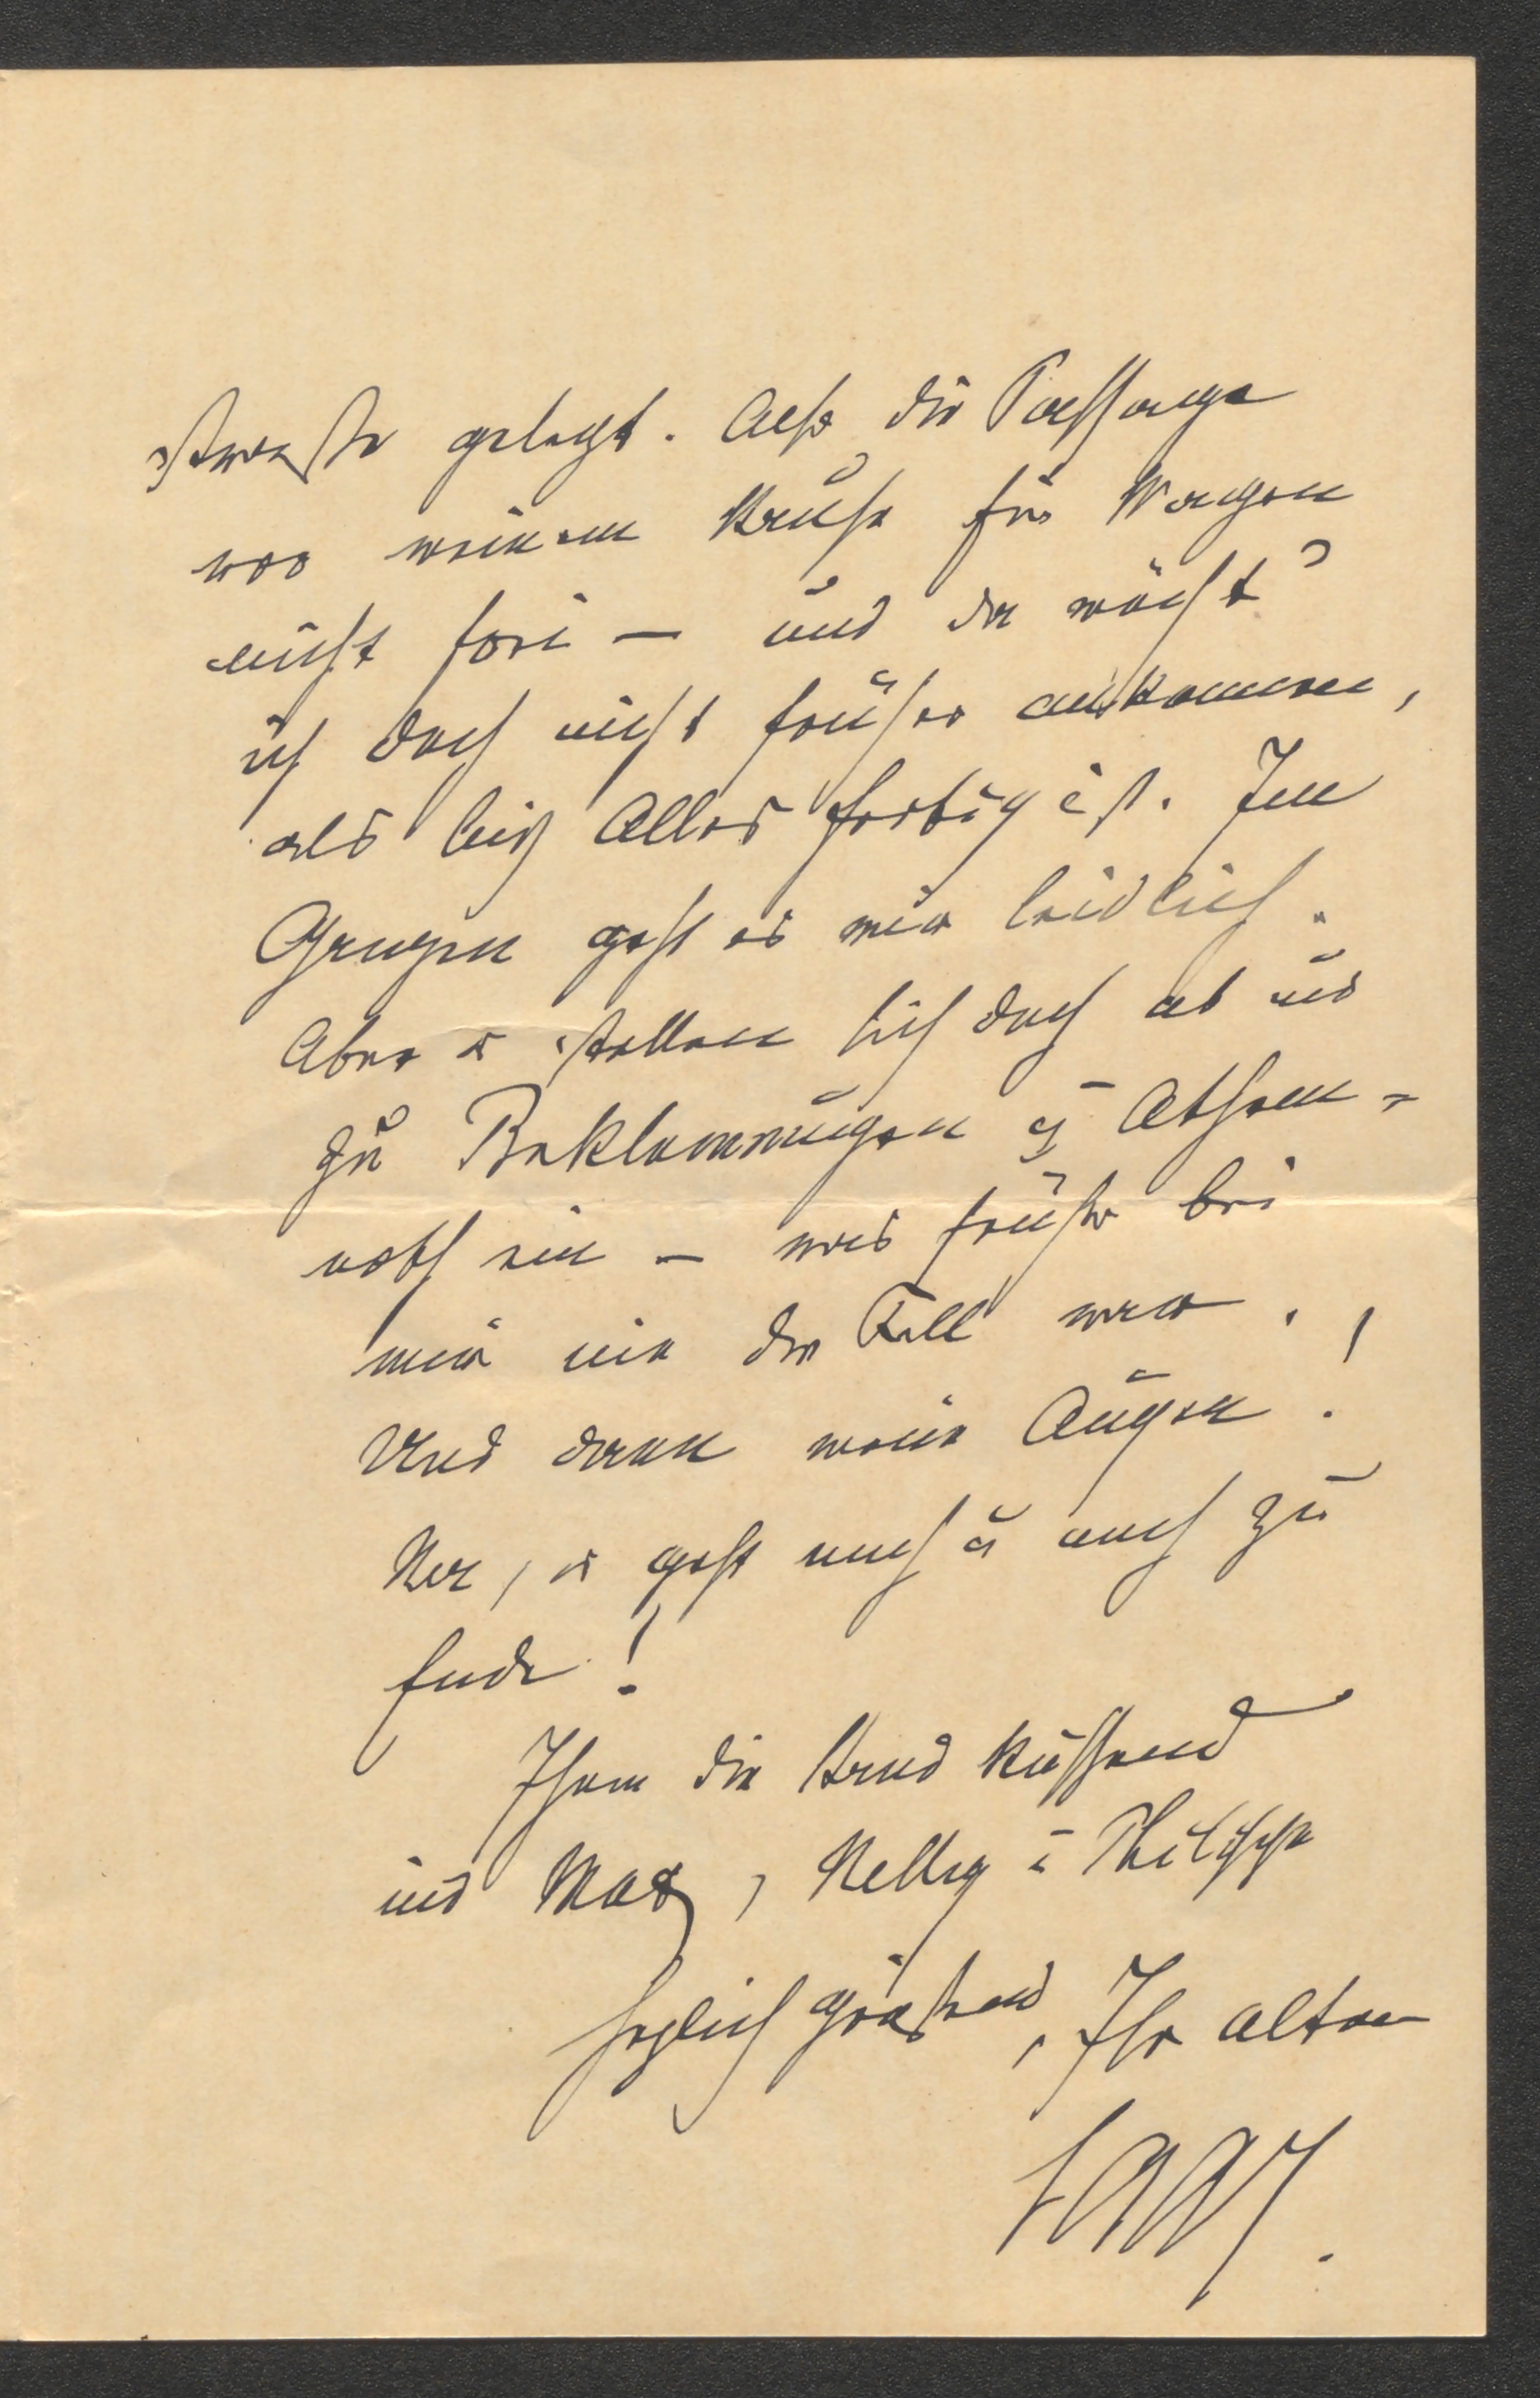 strasse gelegt. Also die Passage
vor meinem Hause für Wagen
nicht frei – und da möcht'
ich doch nicht früher ankommen,
als bis Alles fertig ist. Im
Ganzen geht es mir leidlich.
Aber es stellen sich doch ab und
zu Beklemmungen u Athem-
noth ein – was früher bei
mir nie der Fall war.
Und dann meine Augen!
Na, es geht auch zu
Ende!
Ihnen die Hand küssend
und Max, Nelly u Philipp
herzlich grüßend, Ihr alter
SAAR.